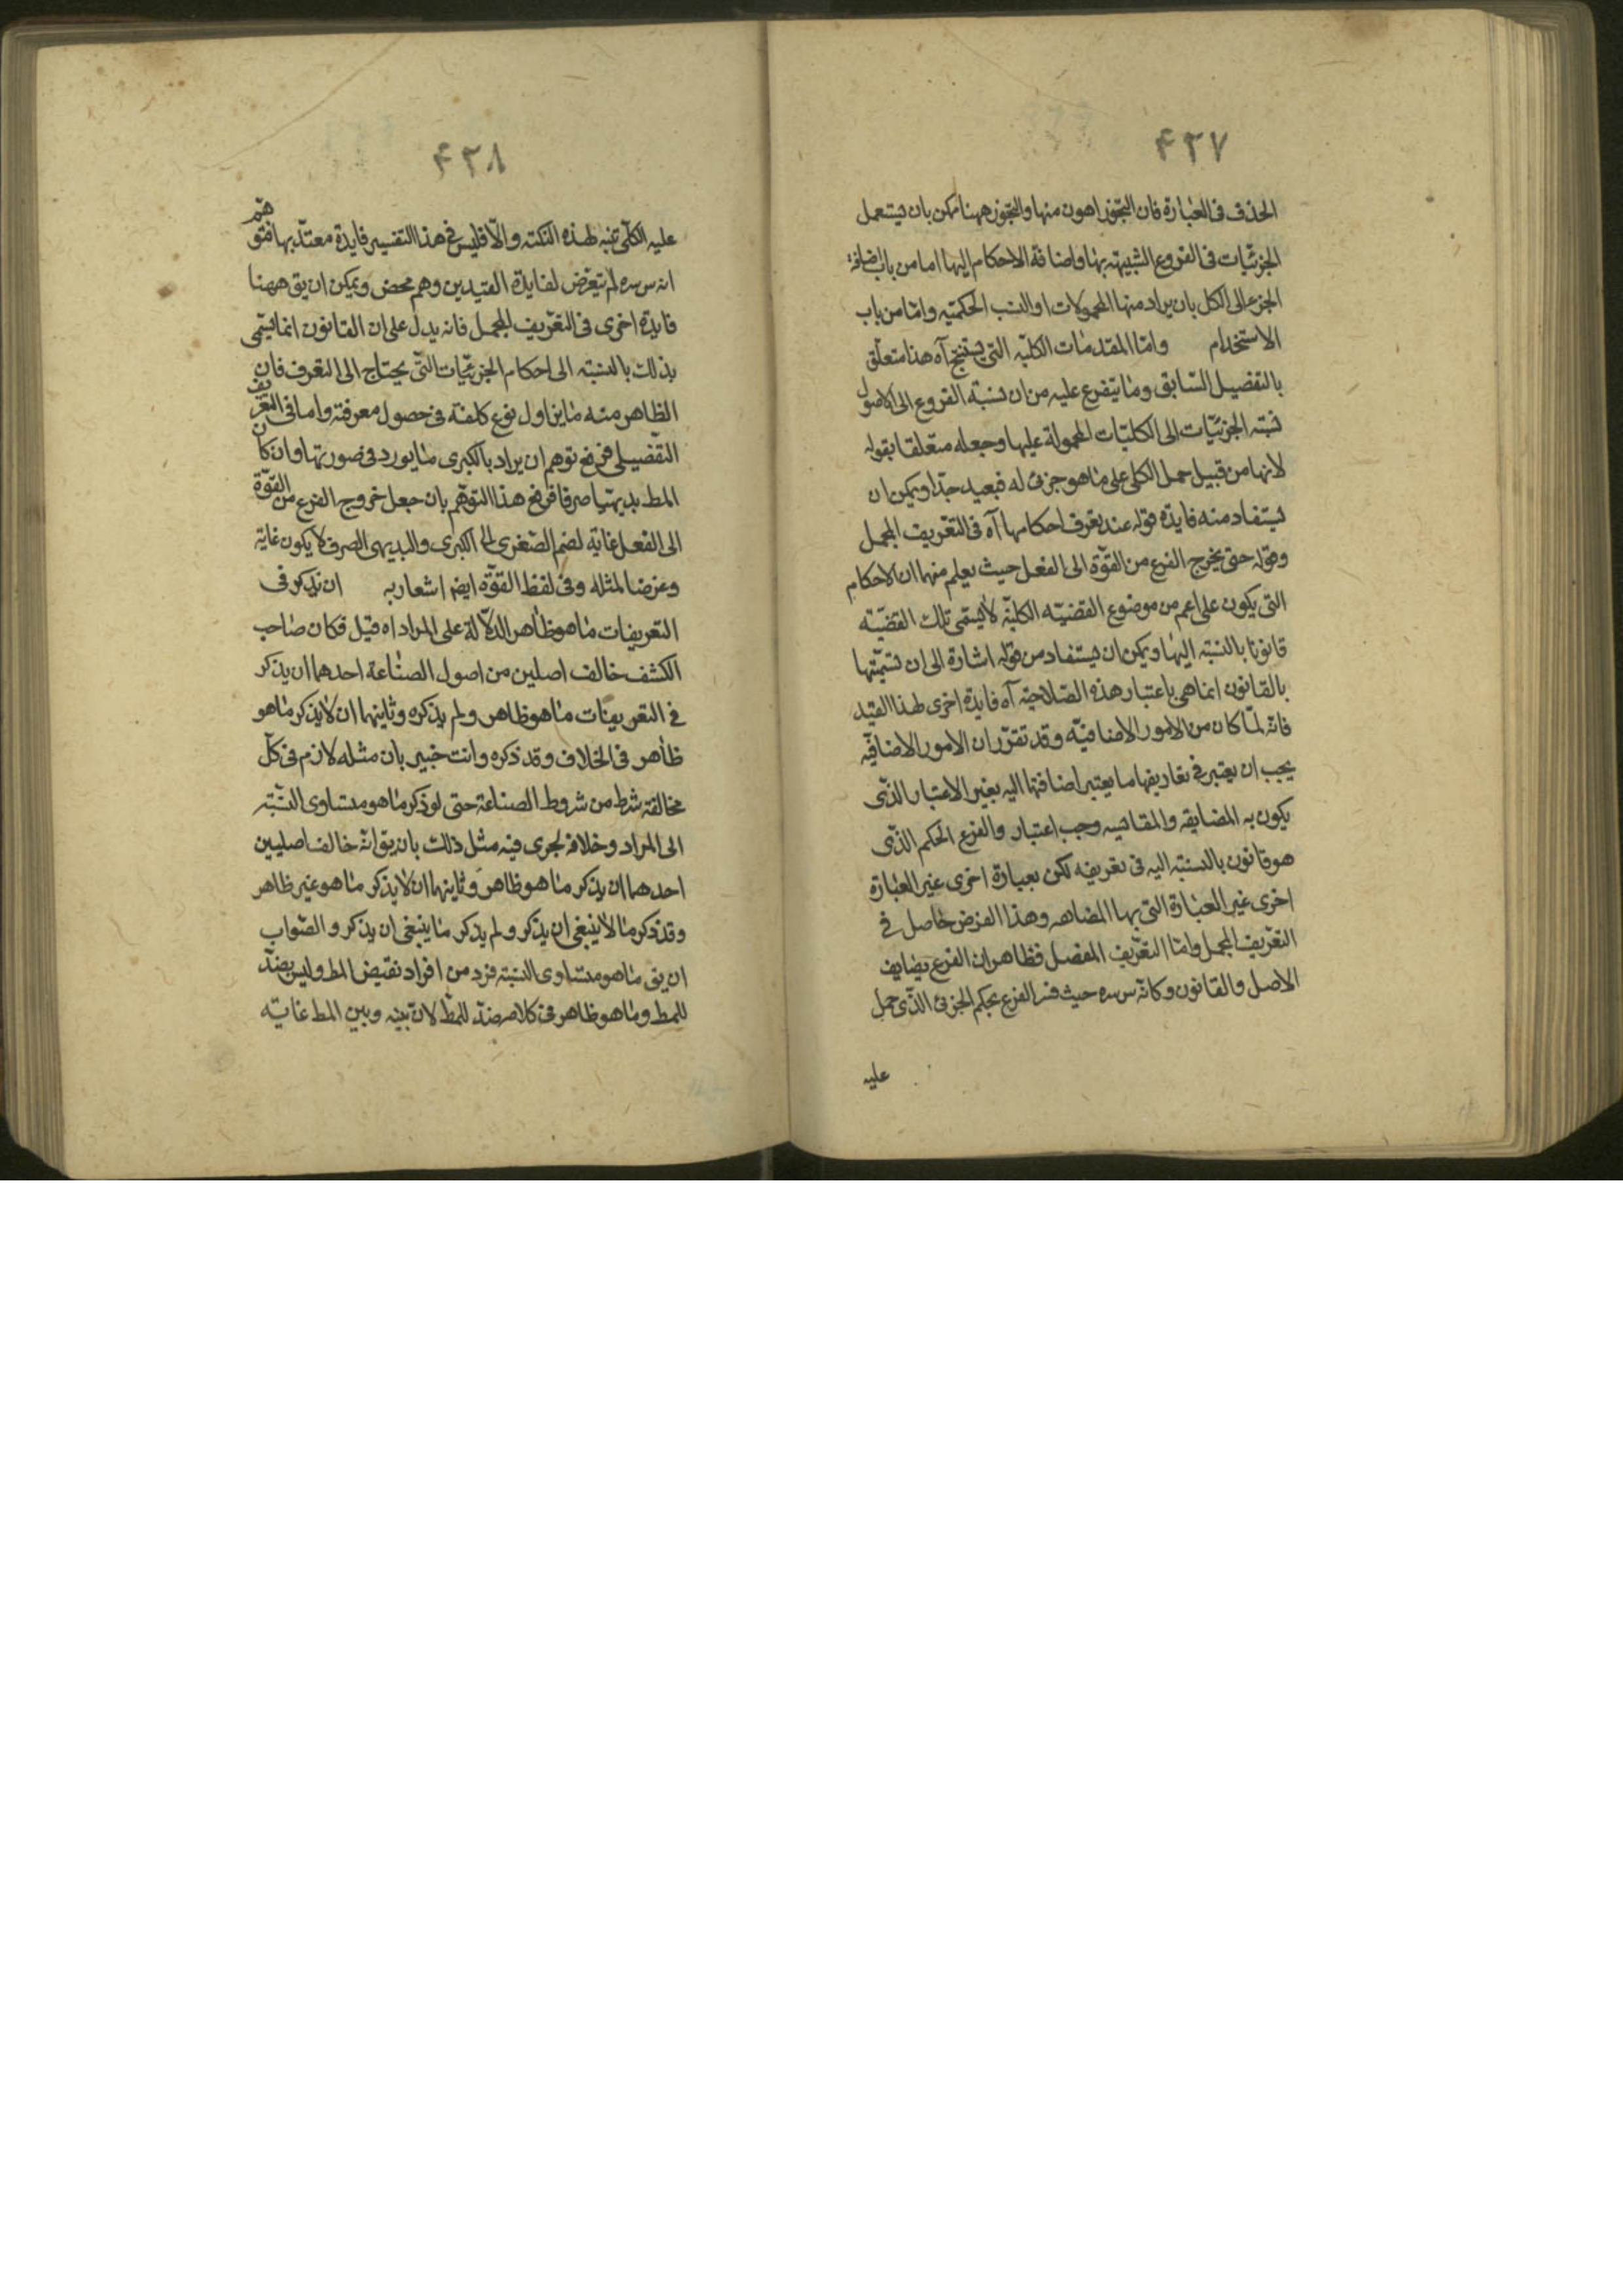 ٤٢٧
الحذف فى العبارة فان التجوّز اهون منها والتجوّز ههنا يمكن بان يستعمل
الجزئيات فى الفروع الشبيهة بها واضافة الاحكام اليها اما من باب اضافة
الجزء الى الكل بان يراد منها المحمولات او النسب الحكمية واما من باب
الاستخدام واما المقدمات الكليّة التى يستنتج آه هذا متعلّق
بالتفصيل السّابق وما يتفرع عليه من ان نسبة الفروع الى الاصول
نسبة الجزئيّات الى الكليّات المحمولة عليها وجعله متعلقا بقوله
لانها من قبيل حمل الكلى على ما هو جزئى له فبعيد جدّا ويمكن ان
يستفاد منه فايدة قوله عند تعرف احكامها آه فى التعريف المجمل
وقوله حتى يخرج الفرع من القوّة الى الفعل حيث يعلم منهما ان الاحكام
التى يكون على اعم من موضوع القضيّه الكليّة لا يسمّى تلك القضيّه
قانونا بالنسبة اليها ويمكن ان يستفاد من قوله اشارة الى ان تسميتها
بالقانون انما هى باعتبار هذه الصّلاحية آه فايدة اخرى لهذا القيد
فانه لمّا كان من الامور الاضافيّة وقد تقرّر ان الامور الاضافيّه
يجب ان يعتبر فى تعاريفها ما يعتبر اضافتها اليه بغير الاعتبار الذى
يكون به المضايقه والمقائسه وجب اعتبار والفرع الحكم الذّى
هو قانون بالنسبة اليه فى تعريفه لكن بعبارة اخرى غير العبارة
اخرى غير العبارة التى بها المضاهه وهذا الفرض حاصل فى
التعريف المجمل وامّا التعريف المفصل فظاهر ان الفرع يضايف
الاصل والقانون وكانه س سره حيث فسر الفرع بحكم الجزئى الذى حمل
عليه
٤٢٨
عليه الكلّى تنبه لهذه النكتة والّا فليس فى هذا التفسير فايدة معتدّ بها فتوهّم
انه س سره لم يتعرّض لفايدة القيدين وهم محض ويمكن ان يق ههنا
فايدة اخرى فى التعريف المجمل فانه يدل على ان القانون انما يسمّى
بذلك بالنسبة الى احكام الجزئيّات التّى يحتاج الى التعرف فان
الظاهر منه ما يزاول نوع كلفة فى حصول معرفته واما فى التعريف
التفصيلى توهم ان يراد بالكبرى ما يورد فى صورتها وان كان
المط بديهيّا صرفا هذا التوهّم بان جعل خروج الفرع من القوّة
الى الفعل غاية لضم الصّغرى الى الكبرى والبديهى الصرف لا يكون غاية
وعرضا لمثله وفى لفظ القوّة ايضا اشعار به ان نذكر فى
التعريفات ما هو ظاهر الدلالة على المراد اه قيل فكان صاحب
الكشف خالف اصلين من اصول الصنّاعة احدهما ان يذكر
فى التعريفات ما هو ظاهر ولم يذكره وثانيهما ان لا يذكر ما هو
ظاهر فى الخلاف وقد ذكره وانت خبير بان مثله لازم فى كلّ
مخالفة شرط من شروط الصناعة حتى لو ذكر ما هو متساوى النسبة
الى المراد وخلافه لجرى فيه مثل ذلك بان يق انه خالف اصليين
احدهما ان يذكر ما هو ظاهر وثانيهما ان لا يذكر ما هو غير ظاهر
وقد ذكر ما لا ينبغى ان يذكر ولم يذكر ما ينبغى ان يذكر والصّواب
ان يق ما هو متساوى النسبة فرد من افراد نقيض المط وليس بضدّ
للمط وما هو ظاهر فى ضدّ للمط لان بينه وبين المط غاية